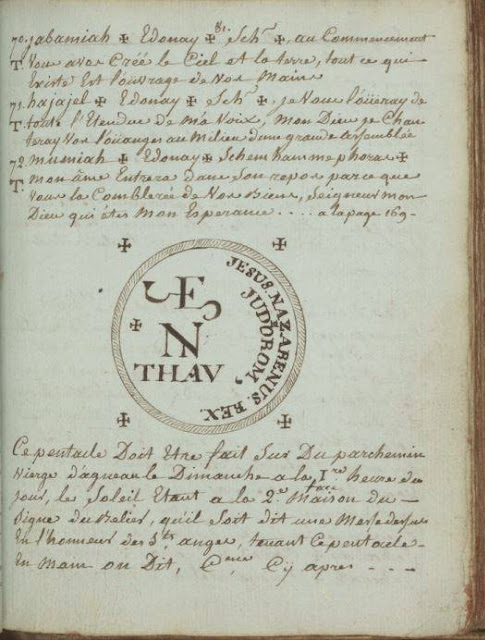 81.
70. jabamiah ✠ Edonay ✠ Sch.ʳ ✠, au Commencement
T. Vous avez Créé le Ciel et la terre, tout ce qui
Existe Est l'oüvrage de Vos Mains
71. hajajel ✠ Edonay ✠ Sch.ʳ ✠, je Vous loüeray de
T. toute l'Etendue de Ma Voix, Mon Dieu je Chan
teray Vos loüanges au Milieu d'une grande assemblée
72. mumiah ✠ Edonay ✠ Schemhammephoras ✠
T. mon âme Entrera dans Son repos parce que
Vous la Comblerée de Vos Biens, Seigneur mon
Dieu qui êtes Mon Esperance .... a la page 169-
✠ ✠
JESUS. NAZARENUS. REX.
JUDOROM,
E
✠ N
THAV
✠ ✠
Ce pentacle Doit Etre fait Sur Du parchemin
Vierge d'agneau le Dimanche a la I.re heure du
jour, le Soleil Etant a la 2.e face Maison du -
Signe du Belier, qu'il Soit dit une Messe dessus
En l'honneur des S.ts anges, tenant Ce pentacle -
En Main on Dit, Cy apres - - -